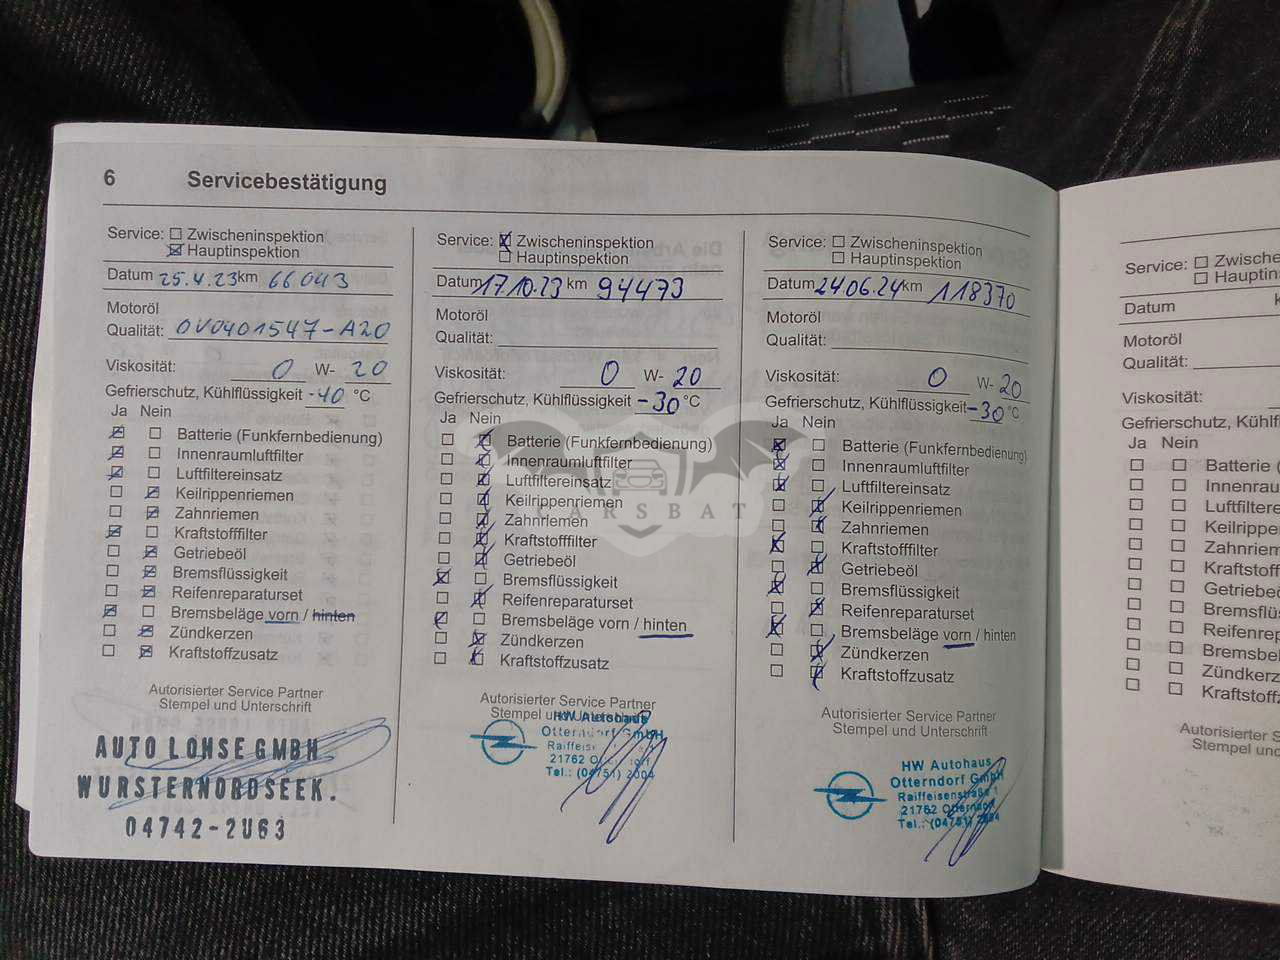 6 Servicebestätigung
Service: Zwischeninspektion
Hauptinspektion
Datum 25.4.23 km 66043
Motoröl
Qualität: OV0401547-A20
Viskosität: 0 W- 20
Gefrierschutz, Kühlflüssigkeit -40 °C
Ja Nein
Batterie (Funkfernbedienung)
Innenraumluftfilter
Luftfiltereinsatz
Keilrippenriemen
Zahnriemen
Kraftstofffilter
Getriebeöl
Bremsflüssigkeit
Reifenreparaturset
Bremsbeläge vorn / hinten
Zündkerzen
Kraftstoffzusatz
Autorisierter Service Partner
Stempel und Unterschrift
AUTO LOHSE GMBH
WURSTERNORDSEEK.
04742-2063
Service: Zwischeninspektion
Hauptinspektion
Datum 17.10.23 km 94473
Motoröl
Qualität:
Viskosität: 0 W- 20
Gefrierschutz, Kühlflüssigkeit -30 °C
Ja Nein
Batterie (Funkfernbedienung)
Innenraumluftfilter
Luftfiltereinsatz
Keilrippenriemen
Zahnriemen
Kraftstofffilter
Getriebeöl
Bremsflüssigkeit
Reifenreparaturset
Bremsbeläge vorn / hinten
Zündkerzen
Kraftstoffzusatz
Autorisierter Service Partner
Stempel und Unterschrift
HW Autohaus
Otterndorf GmbH
21762
Tel.: (04751)
Service: Zwischeninspektion
Hauptinspektion
Datum 24.06.24 km 118370
Motoröl
Qualität:
Viskosität: 0 W- 20
Gefrierschutz, Kühlflüssigkeit -30 °C
Ja Nein
Batterie (Funkfernbedienung)
Innenraumluftfilter
Luftfiltereinsatz
Keilrippenriemen
Zahnriemen
Kraftstofffilter
Getriebeöl
Bremsflüssigkeit
Reifenreparaturset
Bremsbeläge vorn / hinten
Zündkerzen
Kraftstoffzusatz
Autorisierter Service Partner
Stempel und Unterschrift
HW Autohaus
Otterndorf GmbH
Raiffeisenstraße 1
21762 Otterndorf
Tel.: (04751)
Service: Zwische
Hauptin
Datum
Motoröl
Qualität:
Viskosität:
Gefrierschutz, Kühlfl
Ja Nein
Batterie
Innenrau
Luftfilter
Keilripp
Zahnriem
Kraftstof
Getriebe
Bremsflüs
Reifenrep
Bremsbel
Zündkerz
Kraftstoff
Autorisierter S
Stempel und
CARSBAT